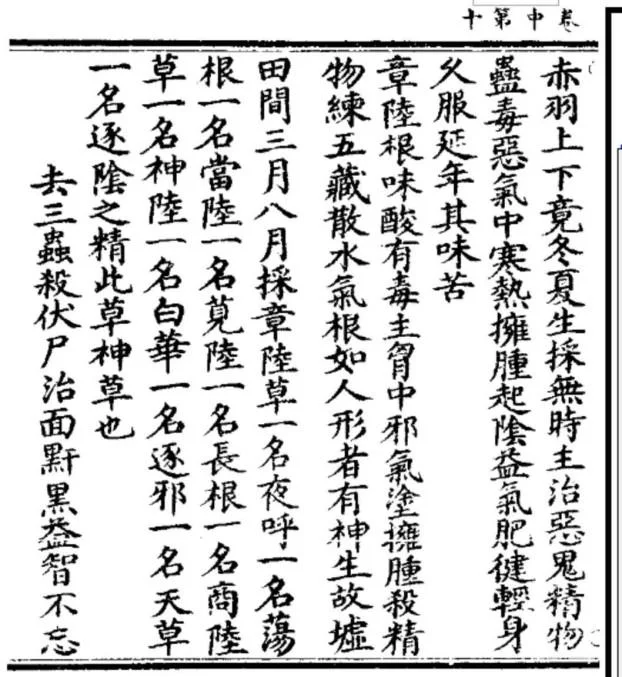 卷中第十
赤羽上下竟冬夏生採無時主治惡鬼精物
蠱毒惡氣中寒熱擁腫起陰益氣肥健輕身
久服延年其味苦
章陸根味酸有毒主胷中邪氣塗擁腫殺精
物練五藏散水氣根如人形者有神生故墟
田間三月八月採章陸草一名夜呼一名蕩
根一名當陸一名莧陸一名長根一名商陸
草一名神陸一名白華一名逐邪一名天草
一名逐陰之精此草神草也
去三蟲殺伏尸治面䵟黑益智不忘